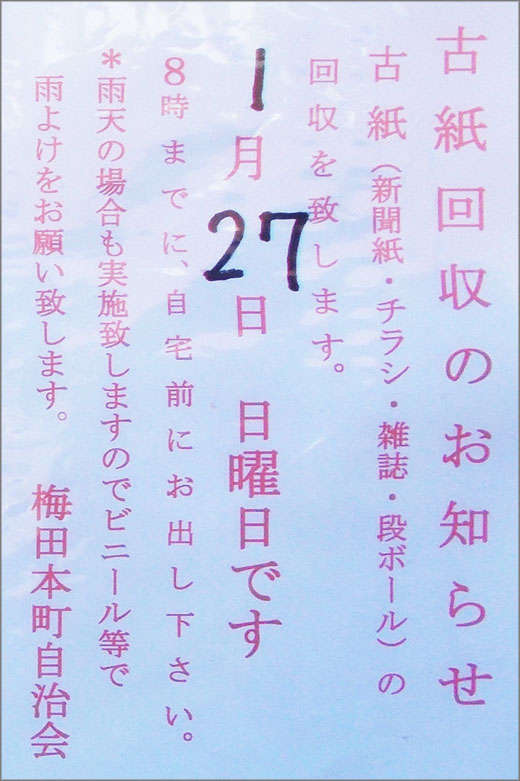 古紙回収のお知らせ
古紙(新聞紙・チラシ・雑誌・段ボール)の
回収を致します。
1月27日 日曜日です
8時までに、自宅前にお出し下さい。
*雨天の場合も実施致しますのでビニール等で
雨よけをお願い致します。
梅田本町自治会